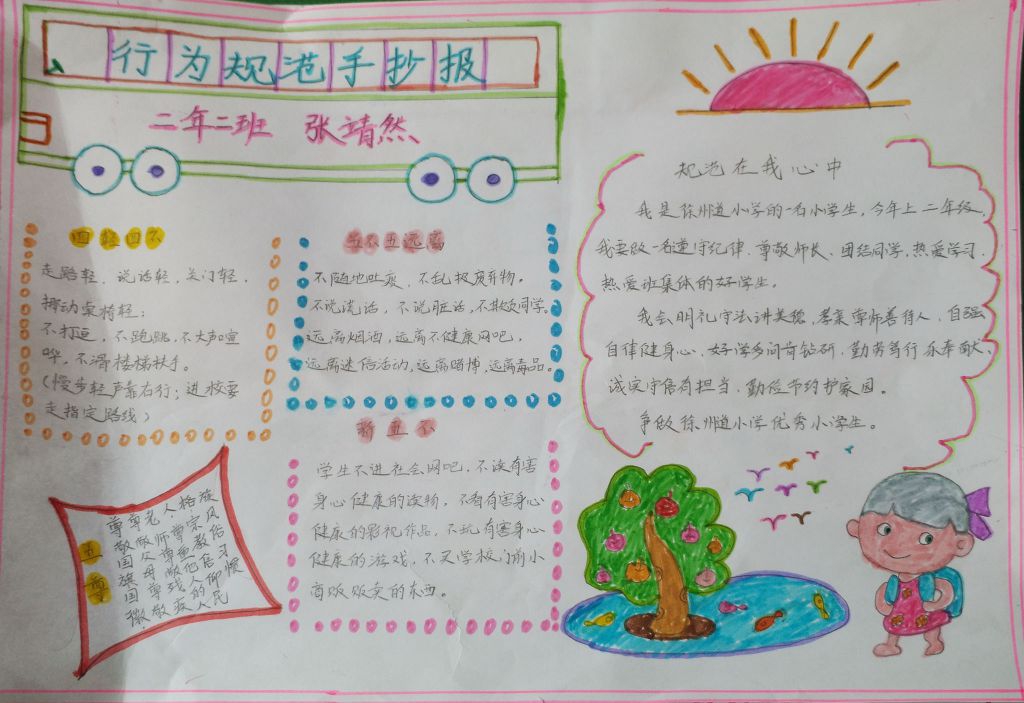 行为规范手抄报
二年二班 张靖然
四轻四不
走路轻、说话轻,关门轻,
挪动桌椅轻;
不打逗,不跑跳,不大声喧
哗,不滑楼梯扶手。
(慢步轻声靠右行;进校要
走指定路线)
五不五远离
不随地吐痰,不乱扔废弃物。
不说谎话,不说脏话,不欺负同学。
远离烟酒,远离不健康网吧,
远离迷信活动,远离赌博,远离毒品。
新五不
学生不进社会网吧,不读有害
身心健康的读物,不看有害身心
健康的影视作品,不玩有害身心
健康的游戏,不买学校门前小
商贩贩卖的东西。
五尊
尊敬国旗国徽
尊敬父母
老师尊敬残疾
人尊重他人的
格宗教信仰
族风俗习惯
规范在我心中
我是徐州道小学的一名小学生,今年上二年级,
我要做一名遵守纪律、尊敬师长、团结同学,热爱学习、
热爱班集体的好学生。
我会明礼守法讲美德,孝亲尊师善待人,自强
自律健身心,好学多问肯钻研,勤劳笃行乐奉献、
诚实守信有担当,勤俭节约护家园。
争做徐州道小学优秀小学生。